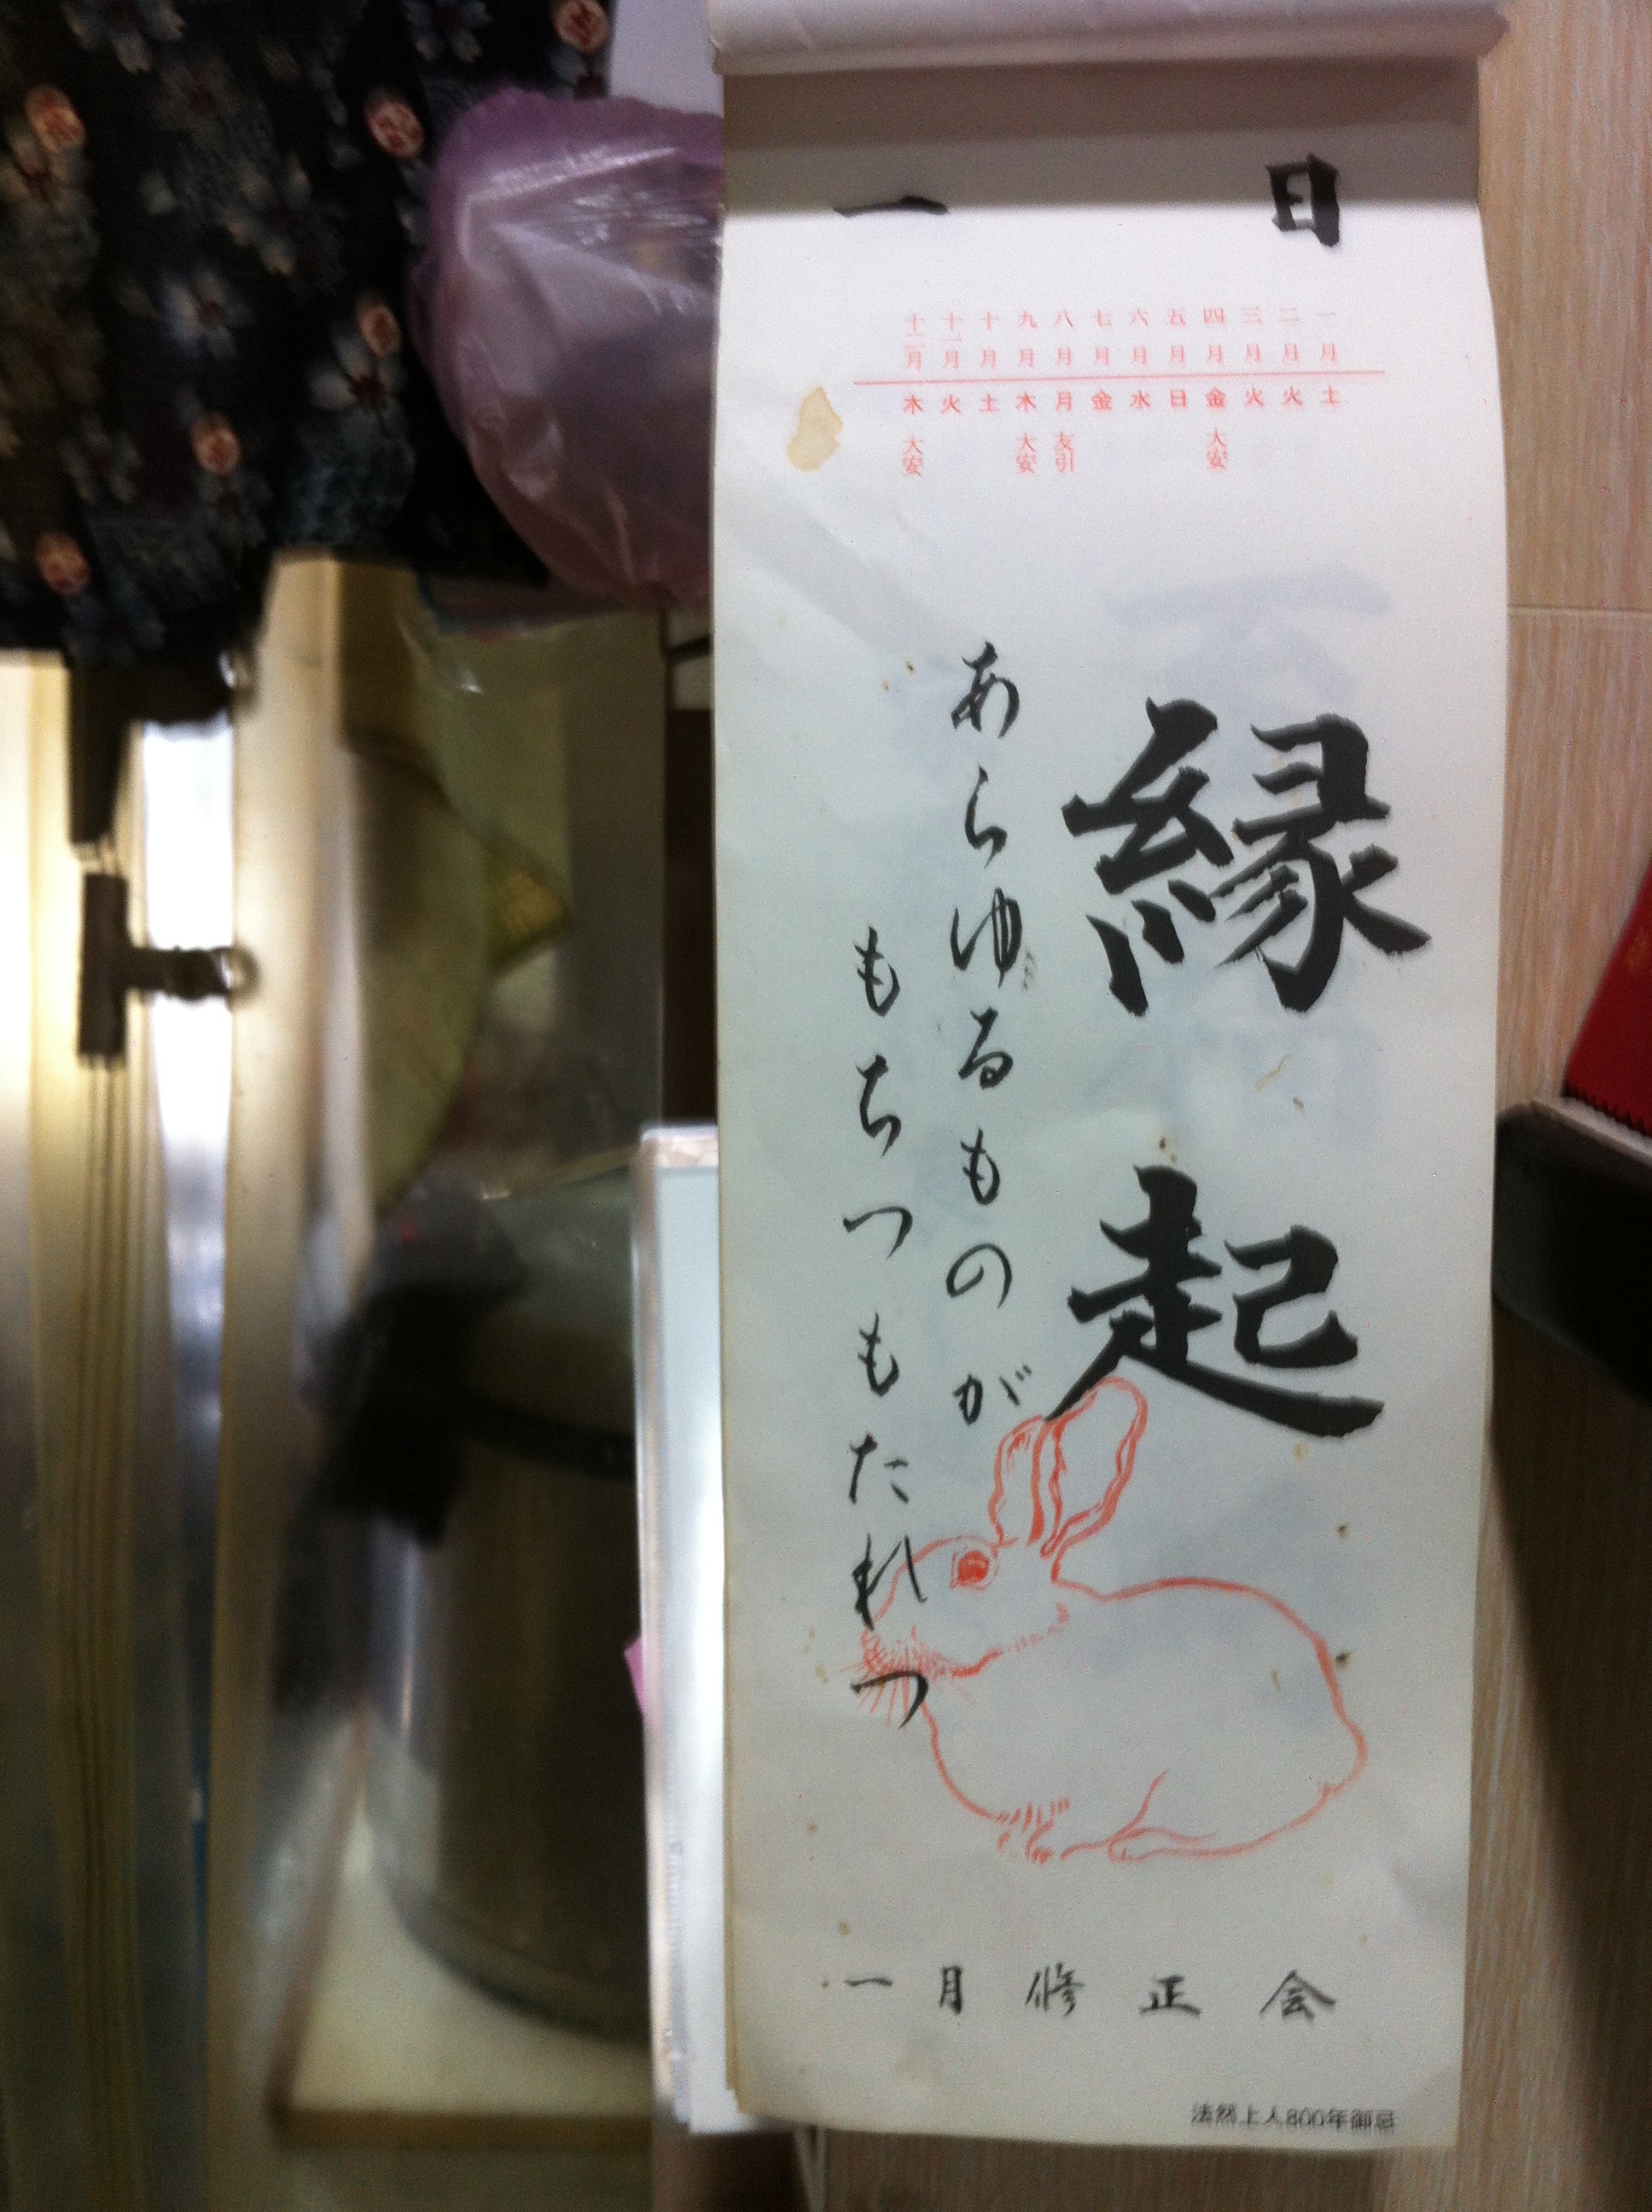 一 日
一月 土
二月 火
三月 火
四月 金 大安
五月 日
六月 水
七月 金
八月 月 友引
九月 木 大安
十月 土
十一月 火
十二月 木 大安
縁起
あらゆるものが
もちつもたれつ
一月修正会
法然上人800年御忌